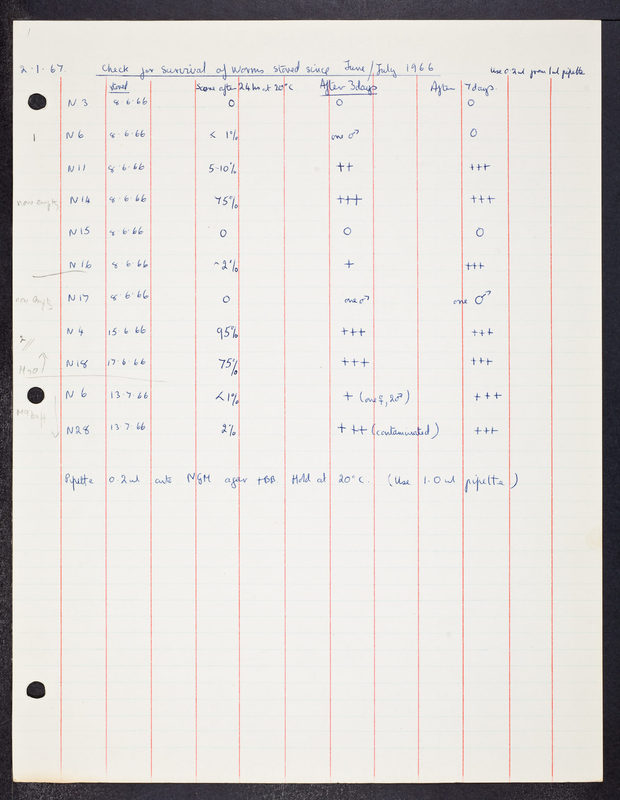 1
2.1.67. Check for survival of worms stored since June/July 1966 use 0.2ml from 1ml pipette
stored Score after 24 hrs at 20°C After 3 days After 7 days
N3 8.6.66 0 0 0
1 N6 8.6.66 < 1% one ♂ 0
N11 8.6.66 5-10% ++ +++
N14 8.6.66 75% +++ +++
N15 8.6.66 0 0 0
N16 8.6.66 ~2% + +++
N17 8.6.66 0 one ♂ one ♂
2 N4 15.6.66 95% +++ +++
H2O ↑ N18 17.6.66 75% +++ +++
N6 13.7.66 <1% + (one ♀, 2♂) +++
N28 13.7.66 2% + ++ (contaminated) +++
Pipette 0.2ml onto NGM agar +BB Hold at 20°C. (Use 1.0 ml pipette)